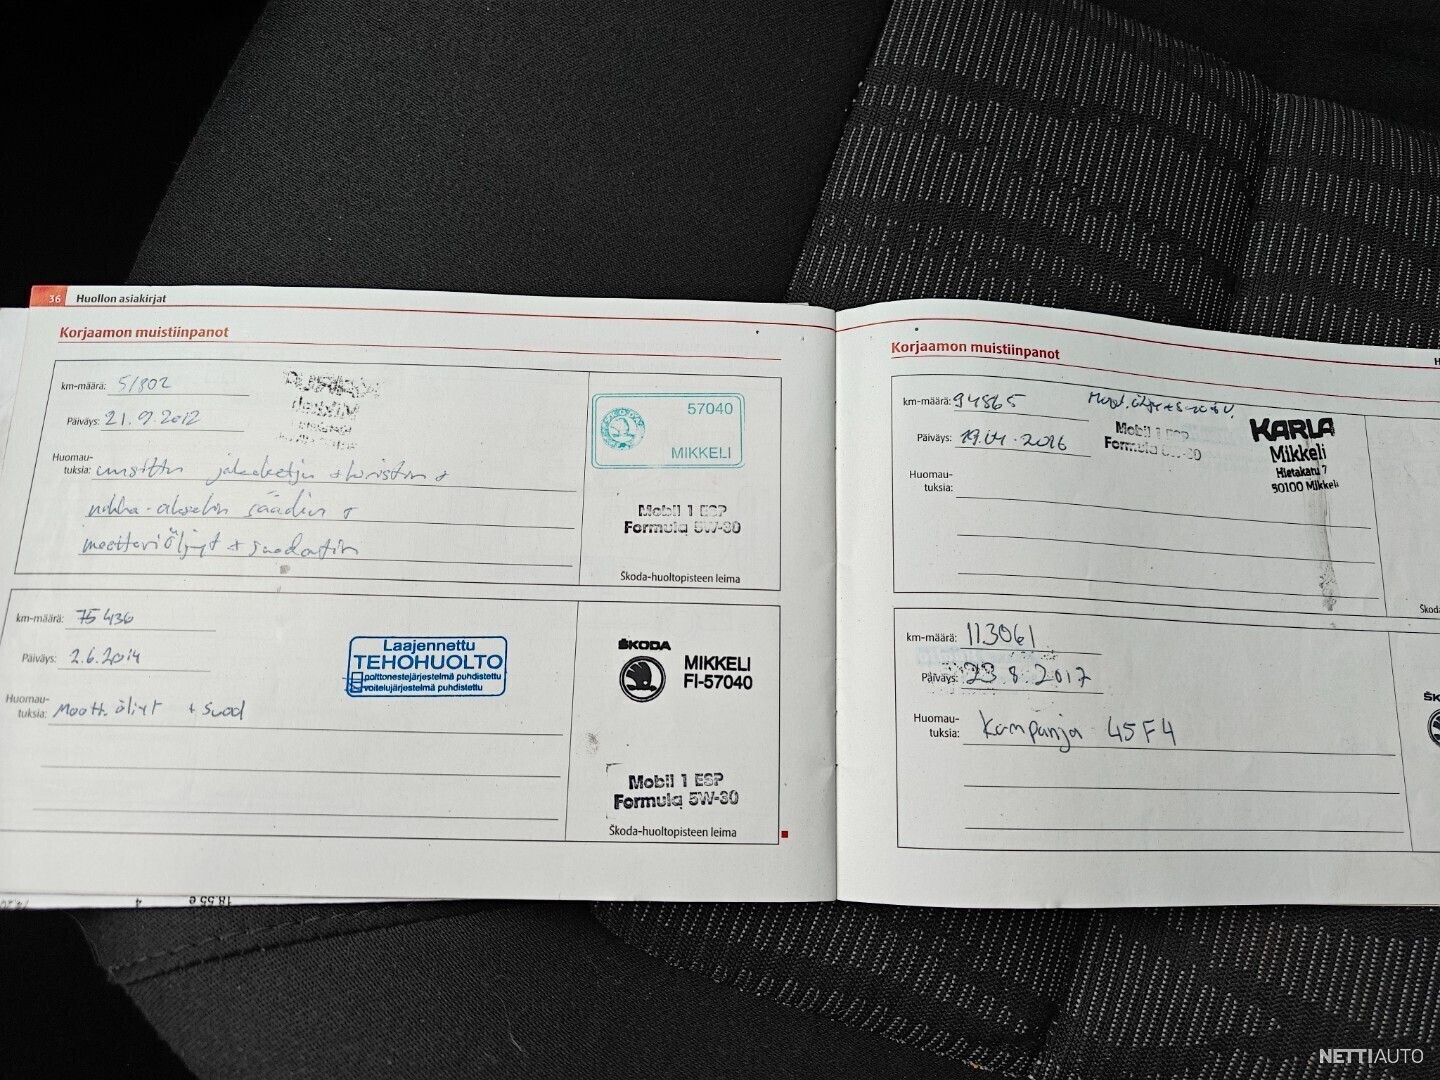 36 Huollon asiakirjat
Korjaamon muistiinpanot
km-määrä: 51802
Päiväys: 21.9.2012
Huomau-
tuksia: uusittu jakoketju + kiristin +
nokka-akselin säädin +
moottoriöljyt + suodatin
57040
MIKKELI
Mobil 1 ESP
Formula 5W-30
Škoda-huoltopisteen leima
km-määrä: 75436
Päiväys: 2.6.2014
Huomau-
tuksia: Moott. öljyt + suod
Laajennettu
TEHOHUOLTO
polttonestejärjestelmä puhdistettu
voitelujärjestelmä puhdistettu
ŠKODA
MIKKELI
FI-57040
Mobil 1 ESP
Formula 5W-30
Škoda-huoltopisteen leima
18.55 e
4
Korjaamon muistiinpanot
km-määrä: 94865
Päiväys: 19.04.2016
Huomau-
tuksia:
Mobil 1 ESP
Formula 5W-30
KARLA
Mikkeli
Hietakatu 7
50100 Mikkeli
km-määrä: 113061
Päiväys: 23.8.2017
Huomau-
tuksia: Kampanja 45F4
NETTIAUTO